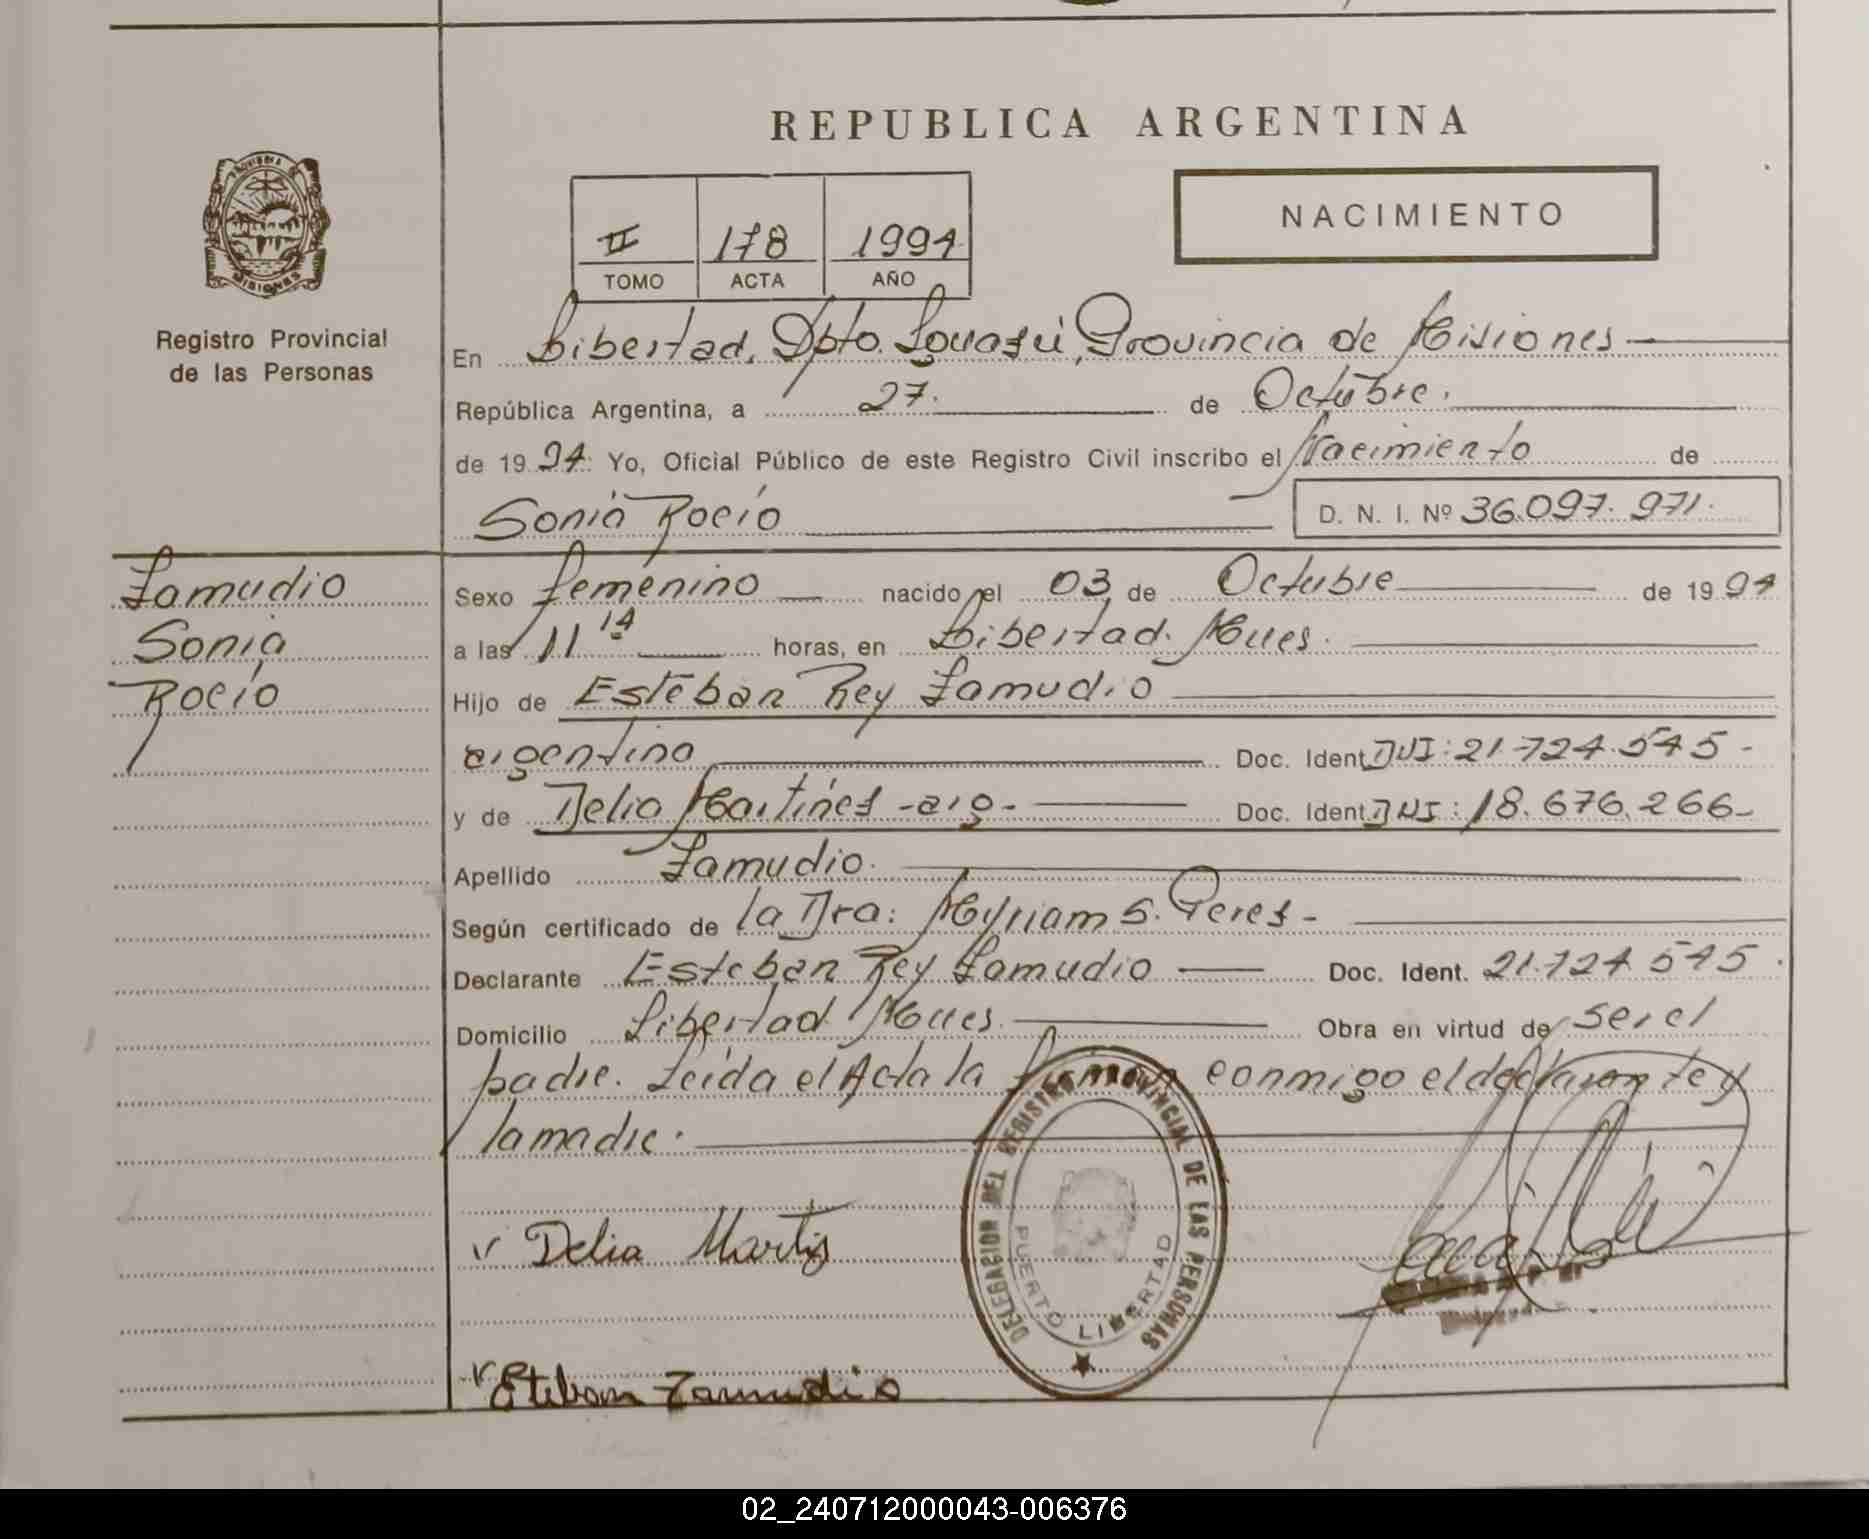 REPUBLICA ARGENTINA
PROVINCIA DE MISIONES
Registro Provincial
de las Personas
II 178 1994
TOMO ACTA AÑO
NACIMIENTO
En Libertad, Dpto. Iguazú, Provincia de Misiones
República Argentina, a 27. de Octubre.
de 19 94. Yo, Oficial Público de este Registro Civil inscribo el Nacimiento de
Sonia Rocío D. N. I. Nº 36.097.971.
Zamudio
Sonia
Rocío
Sexo femenino nacido el 03 de Octubre de 19 94
a las 11 14 horas, en Libertad. Mnes.
Hijo de Esteban Rey Zamudio
argentino Doc. Ident. DNI: 21.724.545-
y de Delia Martinez -arg- Doc. Ident. DNI: 18.676.266-
Apellido Zamudio.
Según certificado de la Dra: Myriam S. Perez-
Declarante Esteban Rey Zamudio Doc. Ident. 21.724.545.
Domicilio Libertad Mnes. Obra en virtud de ser el
padre. Leída el Acta la firman conmigo el declarante y
la madre.
DELEGACION DEL REGISTRO PROVINCIAL DE LAS PERSONAS
PUERTO LIBERTAD
Delia Martis
Esteban Zamudio
02_240712000043-006376